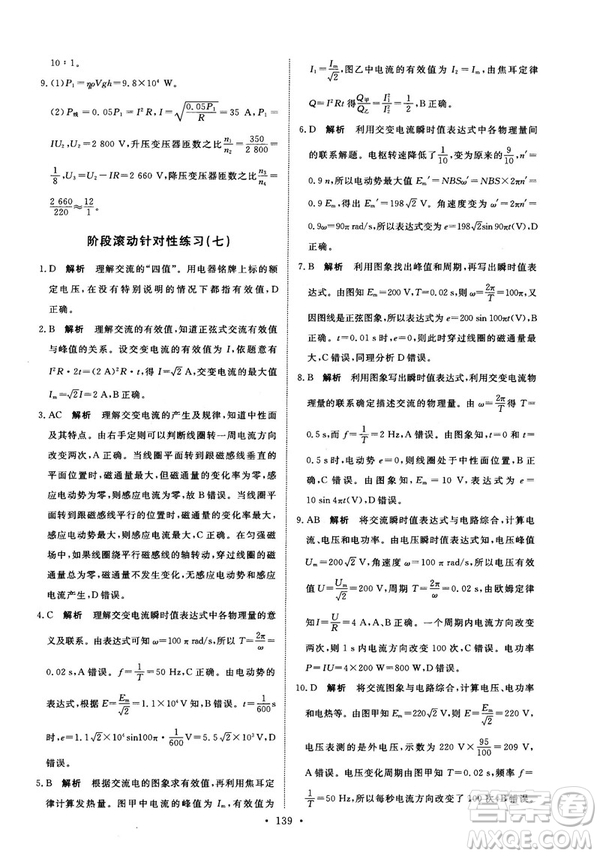 10∶1.
9. (1) P₁=ηρVgh=9.8×10⁴ W.
(2) P残=0.05P₁=I²R, I=√(0.05P₁/R)=35 A, P₁=
IU₂, U₂=2 800 V, 升压变压器匝数之比n₁/n₂=350/2 800=
1/8, U₃=U₂-IR=2 660 V, 降压变压器匝数之比n₃/n₄=
2 660/220≈12/1.
阶段滚动针对性练习(七)
1. D 解析 理解交流的“四值”。用电器铭牌上标的额
定电压,以及一般情况下所说的交变电流都指有效值,
D正确。
2. B 解析 理解交流的有效值,知道正弦式交流有效值
与峰值的关系。设交变电流的有效值为 I,依题意有
I²R·2t=(2 A)²Rt, I=√2 A, Iₘ=√2I=2 A, B正确。
3. AC 解析 理解交变电流的产生及规律,知道中性面
及其特点。由右手定则可以判断线圈转一周电流方向
改变两次,A正确。当线圈平面转到跟磁感线垂直的
平面时,磁通量最大,但磁通量的变化率和感应电动势
为零,感应电流也为零,所以B错误。当线圈平面转到
跟磁感线平行的位置时,磁通量为零,磁通量变化率最
大,感应电动势、感应电流最大,C正确。在匀强磁场
中,如果线圈绕平行于磁感线的轴转动,不会产生感应
电动势,D错误。
4. C 解析 理解交变电流瞬时值表达式中各物理量的意
义及联系。由表达式可知 ω=100π rad/s,则 T=2π/ω=
0.02 s,A错误。f=1/T=50 Hz,B错误。把 t=1/600 s代入
表达式,根据 E=Eₘ/√2=1.1×10⁴ V,C正确。把 t=
1/600 s代入表达式,e=1.1√2×10⁴ sin100π×1/600 V,D错误。
5. B 解析 根据交流电的图象求有效值,根据焦耳定
律计算发热量。图甲中交流电的有效值为
I₁=Iₘ/√2,图乙中电流的有效值为 I₂=Iₘ,由焦耳定律
Q=I²Rt 得Q甲/Q乙=I₁²/I₂²=1/2。
6. D 解析 利用交变电流瞬时值表达式中各物理量间
的联系解题。电枢转速变为原来的9/10,n′/n=9/10,n′=
0.9 n,所以电动势最大值 Eₘ′=NBSω′/Eₘ=NBSω=0.9,
Eₘ′=0.9Eₘ=198√2 V, B错误。角速度变为原来的
0.9,ω′=90π rad/s,所以表达式变为 e′=198√2 sin
90πt V,D正确。
7. B 解析 利用图象找出峰值和周期,再写出瞬时值表
达式。由图可知 Eₘ=200 V,T=0.02 s,ω=2π/T=100π,
又因图线是正弦图象,所以表达式为 e=200 sin 100πt V,
B正确。t=0.01 s时,e=0,所以此时穿过线圈的磁通
量最大,C错误。同理分析 A、D错误。
8. B 解析 利用图象写出瞬时值表达式,利用交变电流物
理量的联系计算各个物理量。由 ω=2π/T=4π rad/s,T=
0.5 s,f=1/T=2 Hz,A错误。由图象可知电动势
t=0.5 s时,电动势 e=0,所以线圈处于中性面位置,
磁通量最大,B正确。由图象可知,电动势表达式为 e=
10 sin 4πt(V),C错误。Eₘ=10 V,D错误。
9. AB 解析 将交流瞬时值表达式与电路综合,计算电
流、电压、电功率等。由瞬时值表达式可知,电压峰值
Uₘ=200√2 V,ω=100π rad/s,则电压有效值 U=
Uₘ/√2=200 V,周期 T=2π/ω=0.02 s,由欧姆定律
I=U/R=4 A,A正确。由于一个周期内电流方向改变
两次,则 1 s内电流方向改变 100次,B正确。电功率
P=IU=4×200 W=800 W,C错误、D错误。
10. D 解析 将交流图象与电路综合,计算电压、电功率
和电热等。由图甲知 Eₘ=220√2 V,E=Eₘ/√2=220 V,
电压表示数为 U=220 V×95/100=209 V,C错误。f=
1/T=50 Hz,所以每秒电流方向改变了 100次,B错误。
139